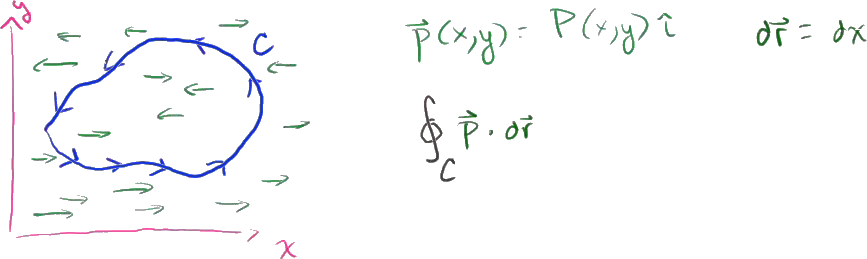 y
C
x
p⃗(x,y) = P(x,y) î
dr⃗ = dx
∮_C p⃗ · dr⃗